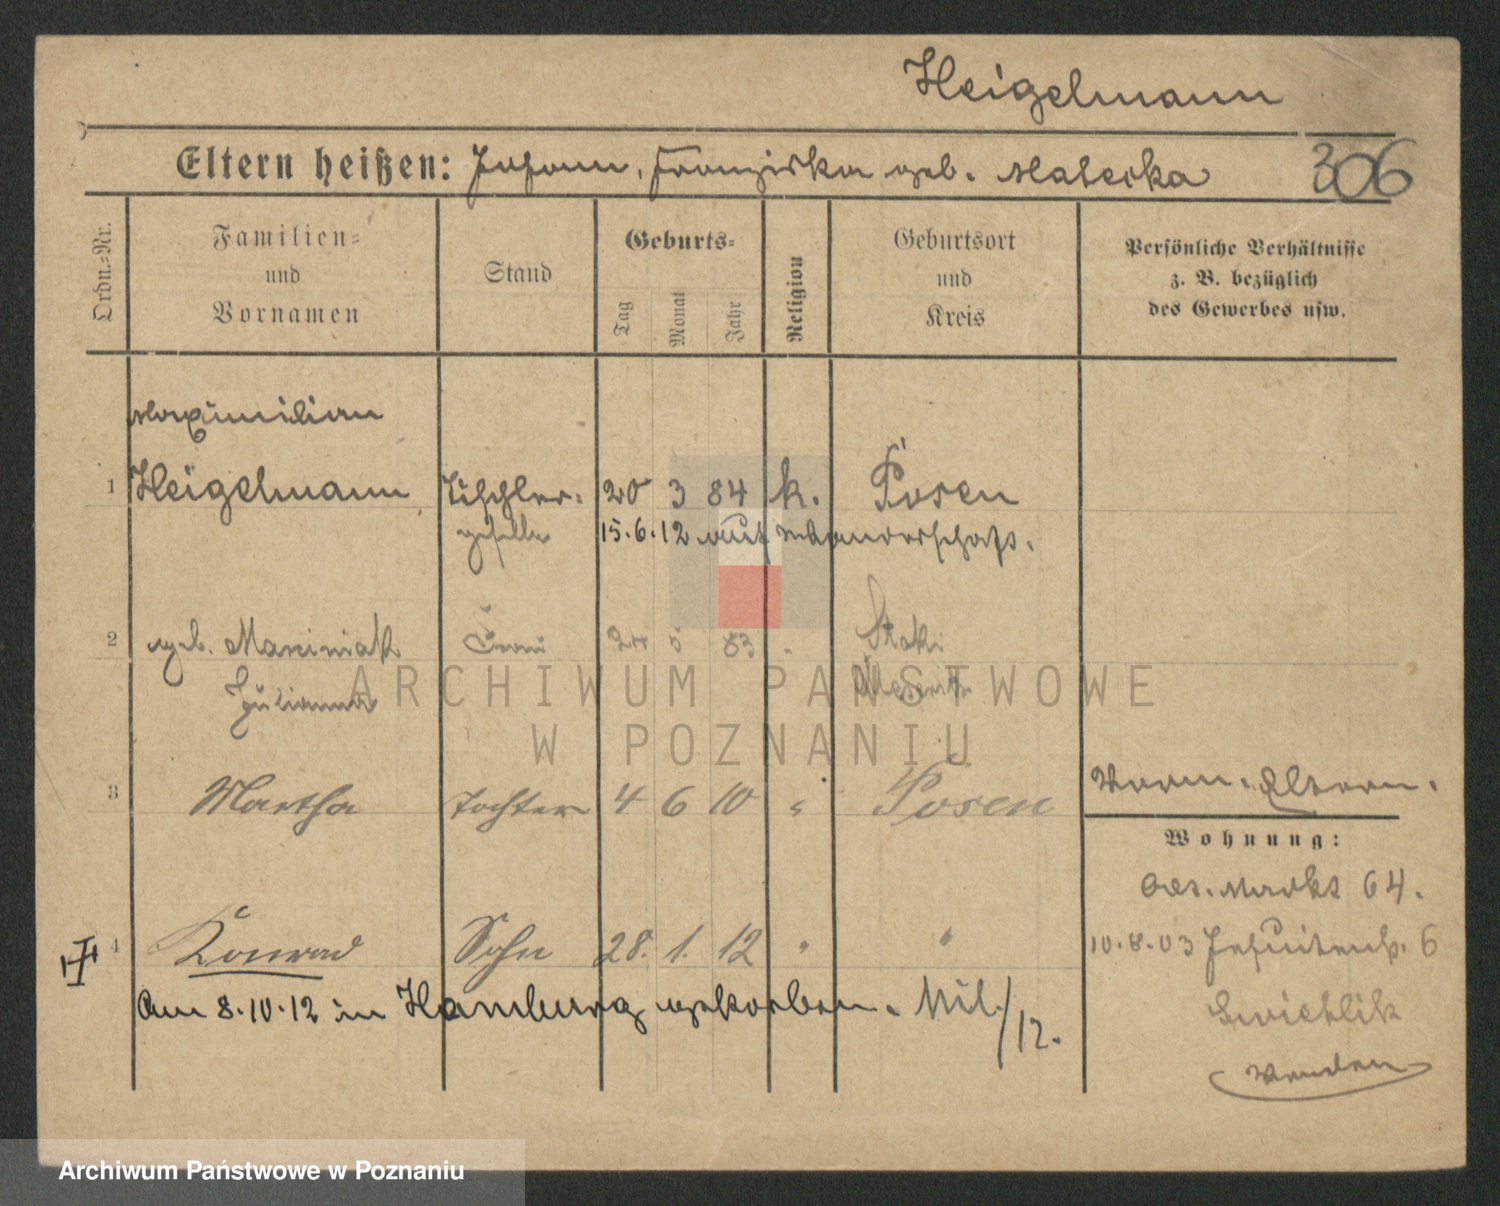 Heigelmann
Eltern heißen: Johann, Franziska geb. Malecka 306
Ordn.-Nr.
Familien-
und
Vornamen
Stand
Geburts-
Tag
Monat
Jahr
Religion
Geburtsort
und
Kreis
Persönliche Verhältnisse
z. B. bezüglich
des Gewerbes usw.
Maximilian
1 Heigelmann Tischler- 20 3 84 k. Posen
geselle 15.6.12 auf Wanderschaft.
2 geb. Marciniak Frau 24 5 83 "
Julianna
3 Martha Tochter 4 6 10 " Posen
Vorm. Eltern.
Wohnung:
Markt 64.
4 Konrad Sohn 28. 1. 12 " "
10.8.03 Jesuitenstr. 6
Am 8.10.12 in Hamburg gestorben. Mil./12.
Cwichlik
Wenden
ARCHIWUM PAŃSTWOWE
W POZNANIU
Archiwum Państwowe w Poznaniu